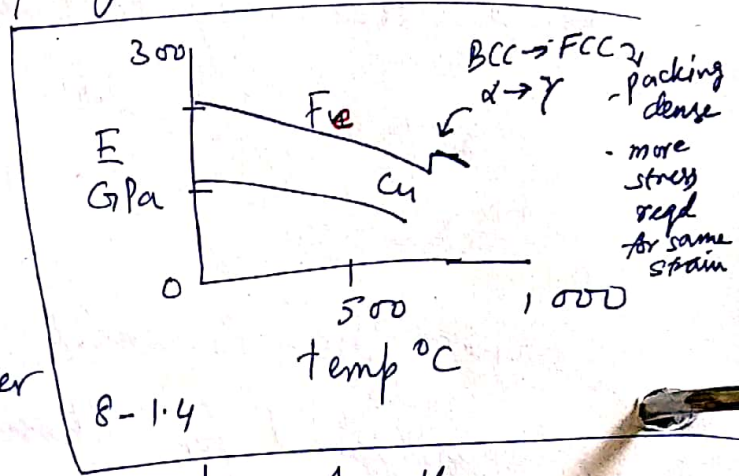 300
E
GPa
0
Fe
Cu
BCC → FCC
α → γ
- packing
dense
· more
stress
reqd
for same
strain
500
1000
temp °C
8-1.4
er